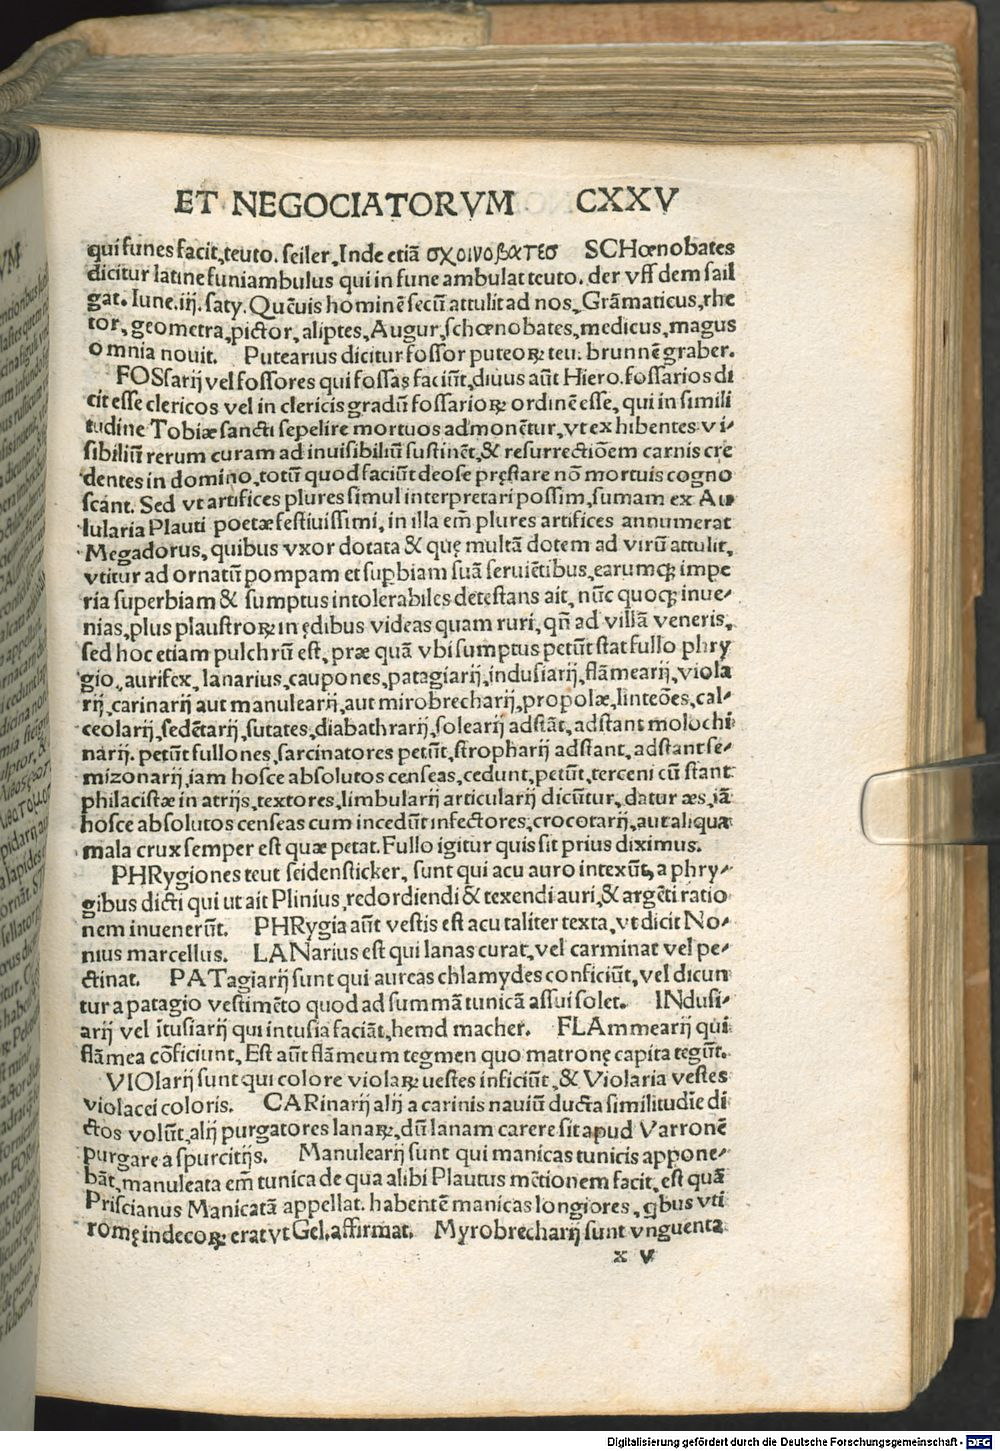 ET NEGOCIATORVM CXXV
qui funes facit, teuto. seiler. Inde etiā σχοινοβατεσ SCHœnobates
dicitur latine funiambulus qui in fune ambulat teuto. der vff dem sail
gat. Iune. iij. saty. Quēuis hominē secū attulit ad nos, Grāmaticus, rhe
tor, geometra, pictor, aliptes, Augur, schœnobates, medicus, magus
omnia nouit. Putearius dicitur fossor puteoꝝ teu. brunnē graber.
FOSsarij vel fossores qui fossas faciūt, diuus aūt Hiero. fossarios di
cit esse clericos vel in clericis gradū fossarioꝝ ordinē esse, qui in simili
tudine Tobiæ sancti sepelire mortuos admonētur, vt exhibentes vi⸗
sibiliū rerum curam ad inuisibiliū sustinēt, & resurrectiōem carnis cre
dentes in domino, totū quod faciūt deo se pręstare nō mortuis cogno
scant. Sed vt artifices plures simul interpretari possim, sumam ex Au
lularia Plauti poetæ festiuissimi, in illa em̄ plures artifices annumerat
Megadorus, quibus vxor dotata & quę multā dotem ad virū attulit,
vtitur ad ornatū pompam et suꝑbiam suā seruiētibus, earumqꝫ impe
ria superbiam & sumptus intolerabiles detestans ait, nūc quoqꝫ inue⸗
nias, plus plaustroꝝ in ędibus videas quam ruri, qn̄ ad villā veneris,
sed hoc etiam pulchrū est, præ quā vbi sumptus petūt stat fullo phry
gio, aurifex, lanarius, caupones, patagiarij, indusiarij, flāmearij, viola
rij, carinarij aut manulearij, aut mirobrecharij, propolæ, linteōes, cal⸗
ceolarij, sedētarij, sutates, diabathrarij, solearij adstāt, adstant molochi
narij. petūt fullones, sarcinatores petūt, stropharij adstant, adstant se⸗
mizonarij, iam hosce absolutos censeas, cedunt, petūt, terceni cū stant
philacistæ in atrijs, textores, limbularij articularij dicūtur, datur æs, iā
hosce absolutos censeas cum incedūt infectores, crocotarij, aut aliqua
mala crux semper est quæ petat. Fullo igitur quis sit prius diximus.
PHRygiones teut seidensticker, sunt qui acu auro intexūt, a phry⸗
gibus dicti qui ut ait Plinius, redordiendi & texendi auri, & argēti ratio
nem inuenerūt. PHRygia aūt vestis est acu taliter texta, vt dicit No⸗
nius marcellus. LANarius est qui lanas curat, vel carminat vel pe⸗
ctinat. PATagiarij sunt qui aureas chlamydes conficiūt, vel dicun
tur a patagio vestimēto quod ad summā tunicā assui solet. INdusi⸗
arij vel ītusiarij qui intusia faciāt, hemd macher. FLAmmearij qui
flāmea cōficiunt, Est aūt flāmeum tegmen quo matronę capita tegūt.
VIOlarij sunt qui colore violaꝝ uestes inficiūt, & Violaria vestes
violacei coloris. CARinarij alij a carinis nauiū ducta similitudīe di
ctos volūt, alij purgatores lanaꝝ, dū lanam carere sit apud Varronē
purgare a spurcitijs. Manulearij sunt qui manicas tunicis appone⸗
bāt, manuleata em̄ tunica de qua alibi Plautus mētionem facit, est quā
Priscianus Manicatā appellat. habentē manicas longiores, ꝗbus vti
romę indecoꝝ erat vt Gel. affirmat. Myrobrecharij sunt vnguenta
x v
Digitalisierung gefördert durch die Deutsche Forschungsgemeinschaft - DFG